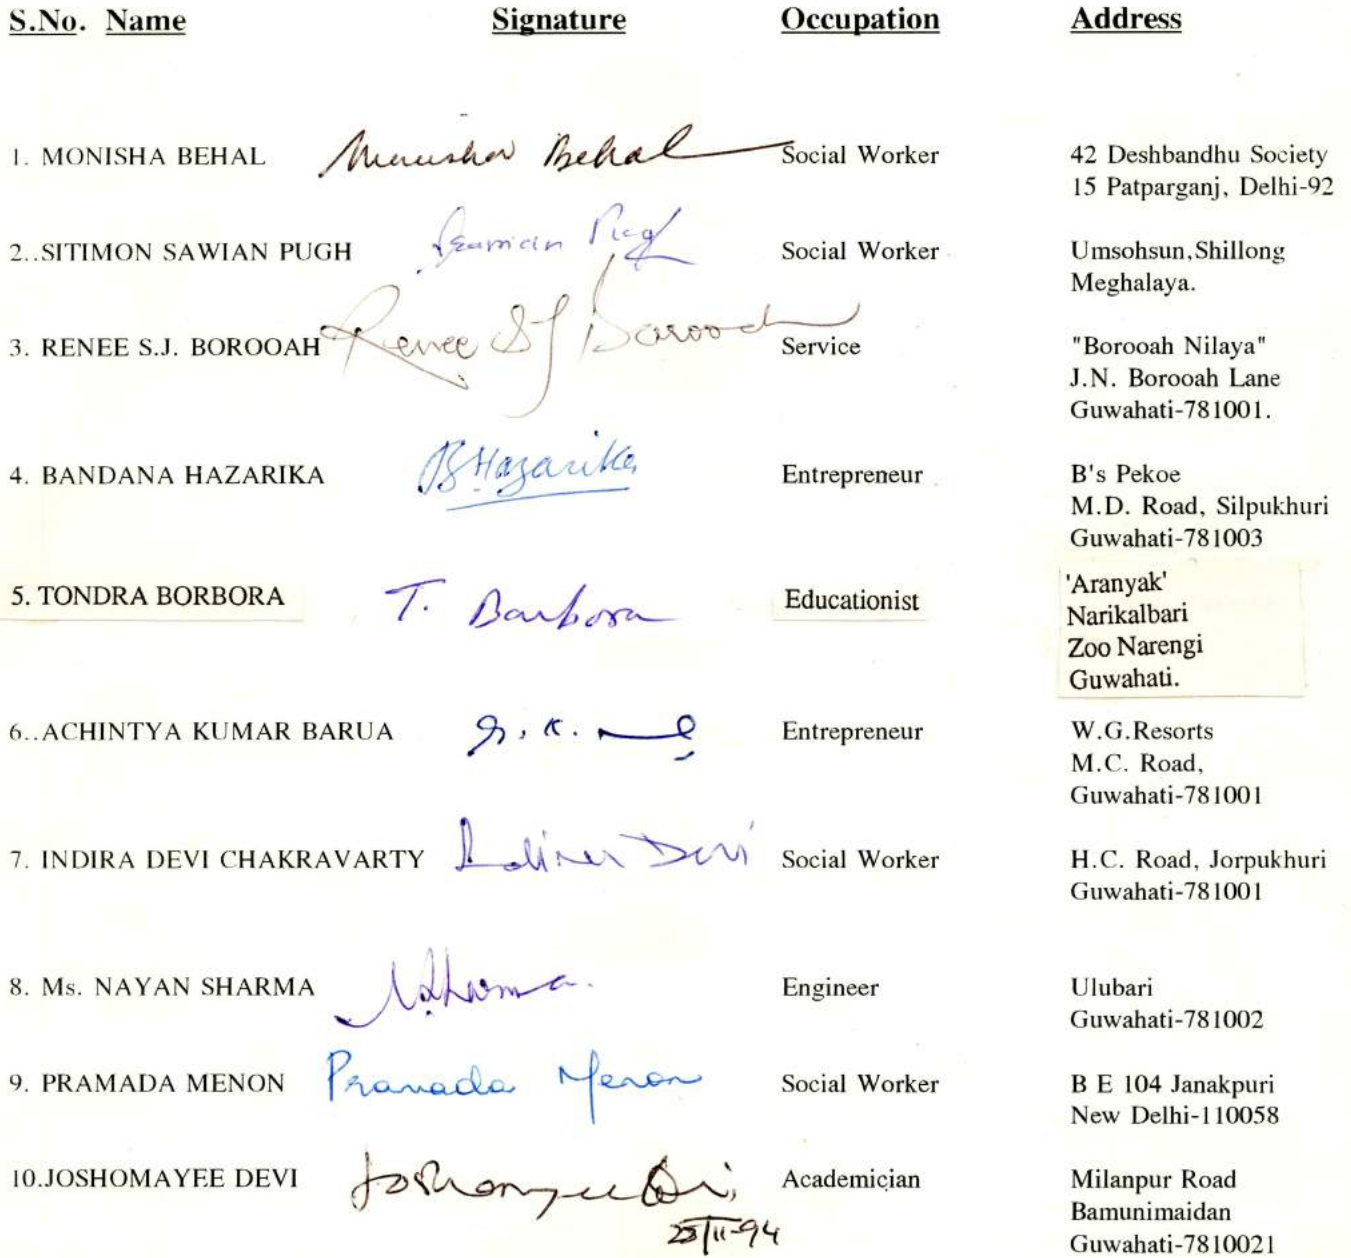 S.No. Name Signature Occupation Address
1. MONISHA BEHAL Monisha Behal Social Worker 42 Deshbandhu Society
15 Patparganj, Delhi-92
2..SITIMON SAWIAN PUGH Sawian Pugh Social Worker Umsohsun,Shillong
Meghalaya.
3. RENEE S.J. BOROOAH Renee SJ Borooah Service "Borooah Nilaya"
J.N. Borooah Lane
Guwahati-781001.
4. BANDANA HAZARIKA BHazarika Entrepreneur B's Pekoe
M.D. Road, Silpukhuri
Guwahati-781003
5. TONDRA BORBORA T. Barbora Educationist 'Aranyak'
Narikalbari
Zoo Narengi
Guwahati.
6..ACHINTYA KUMAR BARUA Entrepreneur W.G.Resorts
M.C. Road,
Guwahati-781001
7. INDIRA DEVI CHAKRAVARTY Indira Devi Social Worker H.C. Road, Jorpukhuri
Guwahati-781001
8. Ms. NAYAN SHARMA NSharma. Engineer Ulubari
Guwahati-781002
9. PRAMADA MENON Pramada Menon Social Worker B E 104 Janakpuri
New Delhi-110058
10.JOSHOMAYEE DEVI Joshomayee Devi Academician Milanpur Road
Bamunimaidan
Guwahati-7810021